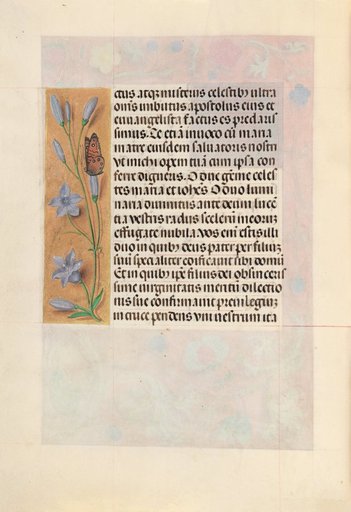 ctus atq; misteriis celestibꝰ ultra
om̄s imbutus apostolus eius et
euangelista factus es preclaris
simus. Te etiā inuoco cū maria
matre eiusdem saluatoris nostri
vt michi opem tuā cum ipsa con
ferre digneris. O due gēme celes
tes maria et ioh̄es. O duo lumi
naria diuinitus ante deum lucē
tia vestris radiis scelerū meorūʒ
effugate nubila vos eni estis illi
duo in quibꝰ deus pater per filiuʒ
suū specialiter edificauit sibi domū
Et in quibꝰ ip̄e filius dei ob sinceris
sime virginitatis meritū dilectio
nis sue confirmauit preuilegiuʒ
in cruce pendens vni vestrum ita